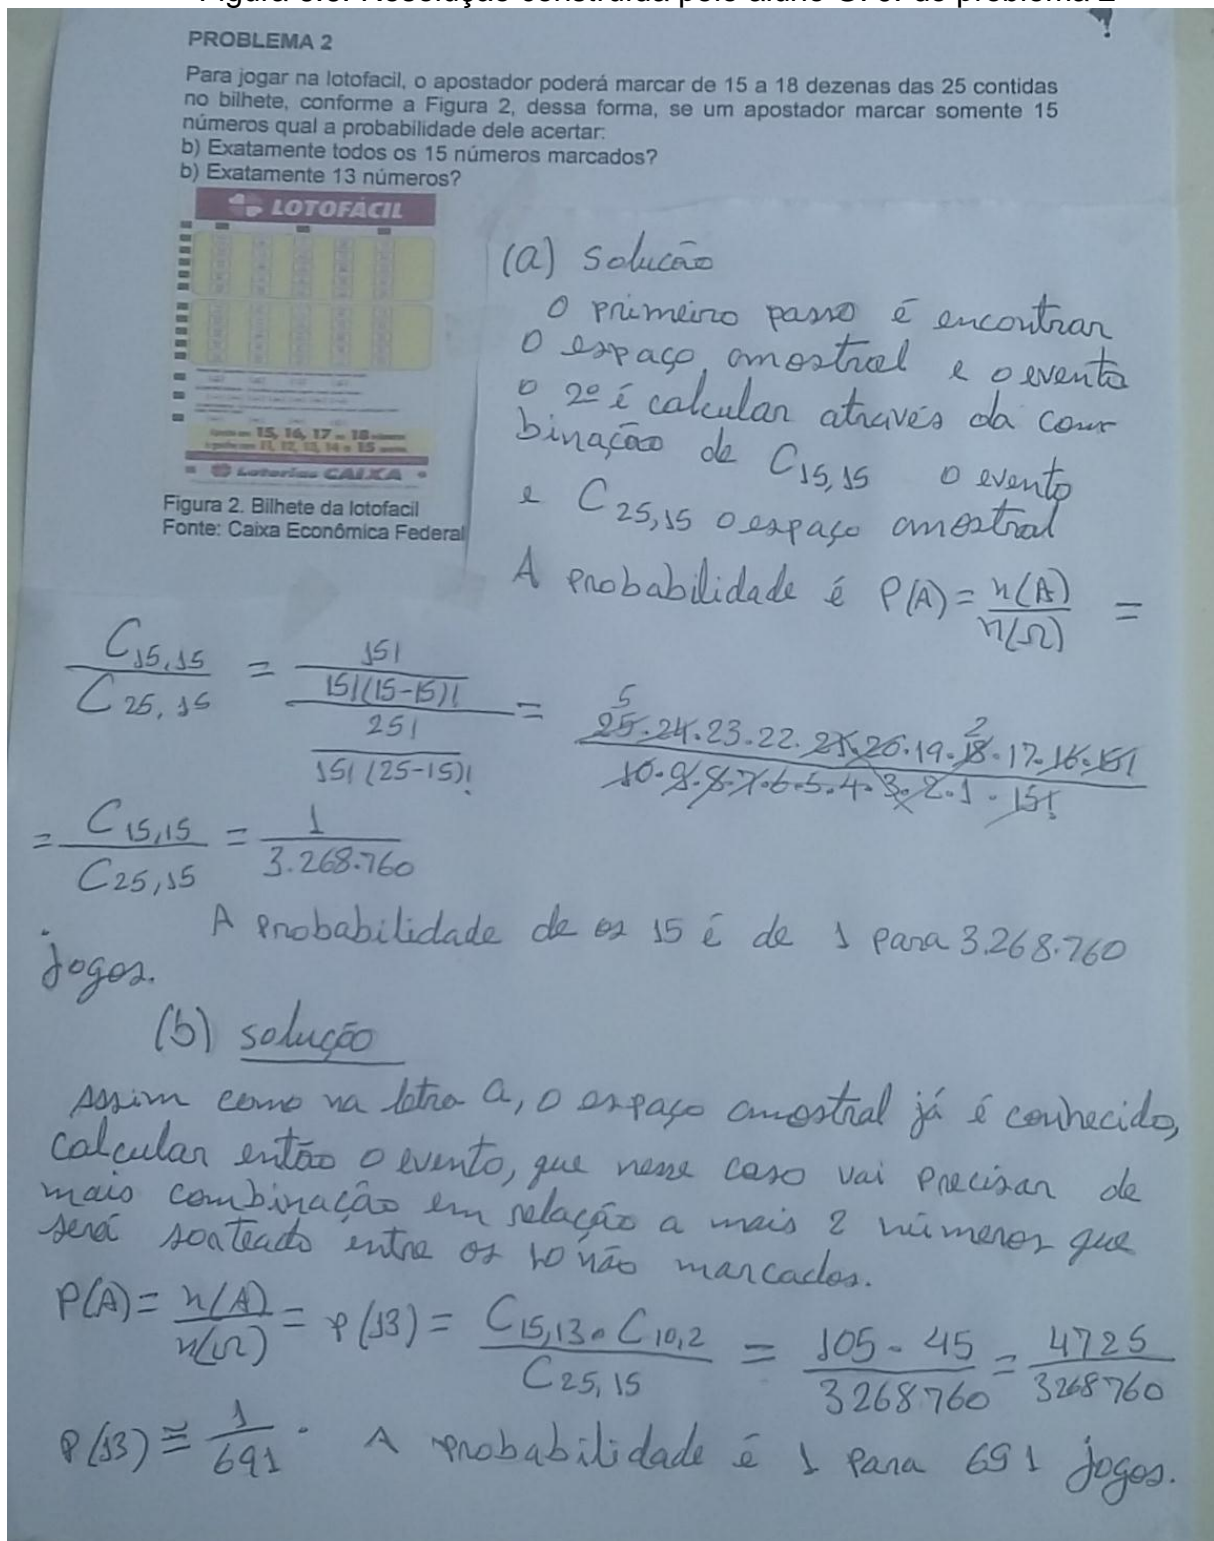 Figura 3.3: Resolução construída pelo aluno do problema 2
PROBLEMA 2
Para jogar na lotofacil, o apostador poderá marcar de 15 a 18 dezenas das 25 contidas
no bilhete, conforme a Figura 2, dessa forma, se um apostador marcar somente 15
números qual a probabilidade dele acertar:
b) Exatamente todos os 15 números marcados?
b) Exatamente 13 números?
LOTOFÁCIL
15, 16, 17 18
11, 12, 13, 14 15
Loterias CAIXA
Figura 2. Bilhete da lotofacil
Fonte: Caixa Econômica Federal
(a) Solucão
O primeiro passo é encontrar
O espaço amostral e o evento
o 2º é calcular através da com
binação de C15,15 o evento
e C25,15 o espaço amostral
A probabilidade é P(A) = n(A)/n(Ω) =
C15,15/C25,15 = 15!/15!(15-15)! / 25!/15!(25-15)! = 5 2 25.24.23.22.21.20.19.18.17.16.15!/10.9.8.7.6.5.4.3.2.1.15!
= C15,15/C25,15 = 1/3.268.760
A probabilidade de os 15 é de 1 para 3.268.760
jogos.
(b) solução
Assim como na letra a, o espaço amostral já é conhecido,
calcular então o evento, que nesse caso vai precisar de
mais combinação em relação a mais 2 números que
será sorteado entre os 10 não marcados.
P(A) = n(A)/n(Ω) = P(13) = C15,13 . C10,2/C25,15 = 105 . 45/3268760 = 4725/3268760
P(13) ≅ 1/691 . A probabilidade é 1 para 691 jogos.